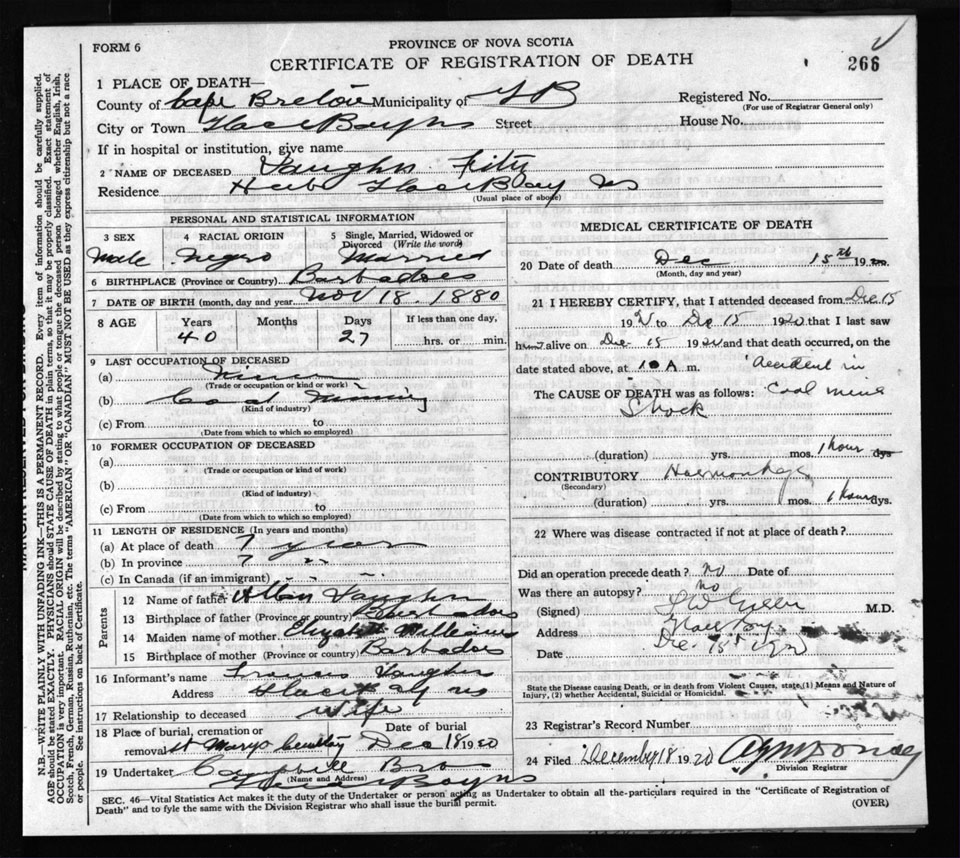 FORM 6
PROVINCE OF NOVA SCOTIA
CERTIFICATE OF REGISTRATION OF DEATH
266
1 PLACE OF DEATH—
County of Cape Breton Municipality of
Registered No.
(For use of Registrar General only)
City or Town Glace Bay ns Street
House No.
If in hospital or institution, give name
2 NAME OF DECEASED Vaughn
Residence Glace Bay ns
(Usual place of abode)
PERSONAL AND STATISTICAL INFORMATION
3 SEX
Male
4 RACIAL ORIGIN
Negro
5 Single, Married, Widowed or
Divorced (Write the word)
Married
6 BIRTHPLACE (Province or Country) Barbadoes
7 DATE OF BIRTH (month, day and year) Nov 18. 1880
8 AGE
Years
40
Months
Days
27
If less than one day,
hrs. or min.
9 LAST OCCUPATION OF DECEASED
(a) Miner
(Trade or occupation or kind or work)
(b) Coal Mining
(Kind of industry)
(c) From to
(Date from which to which so employed)
10 FORMER OCCUPATION OF DECEASED
(a)
(Trade or occupation or kind of work)
(b)
(Kind of industry)
(c) From to
(Date from which to which so employed)
11 LENGTH OF RESIDENCE (In years and months)
(a) At place of death 7 years
(b) In province 7 "
(c) In Canada (if an immigrant) "
Parents
12 Name of father Vaughn
13 Birthplace of father (Province or country) Barbadoes
14 Maiden name of mother Elizabeth Williams
15 Birthplace of mother (Province or country) Barbadoes
16 Informant's name Vaughn
Address Glace Bay ns
17 Relationship to deceased Wife
18 Place of burial, cremation or
removal St Marys Cemetery
Date of burial
Dec 18 1920
19 Undertaker Campbell Bro
(Name and Address)
Glace Bay ns
MEDICAL CERTIFICATE OF DEATH
20 Date of death Dec 15th 1920
(Month, day and year)
21 I HEREBY CERTIFY, that I attended deceased from Dec 15
19 to Dec 15 1920 that I last saw
him alive on Dec 15 1920 and that death occurred, on the
date stated above, at 10 A m. Accident in
The CAUSE OF DEATH was as follows: Coal mine
Shock
(duration) yrs. mos. 1 hour dys
CONTRIBUTORY Haemorrhage
(Secondary)
(duration) yrs. mos. 1 hour dys.
22 Where was disease contracted if not at place of death?
Did an operation precede death? No Date of
Was there an autopsy? no
(Signed) Green M.D.
Address Glace Bay
Date Dec. 15th 1920
State the Disease causing Death, or in death from Violent Causes, state (1) Means and Nature of
Injury, (2) whether Accidental, Suicidal or Homicidal.
23 Registrar's Record Number
24 Filed December 18 1920
Division Registrar
SEC. 46—Vital Statistics Act makes it the duty of the Undertaker or person acting as Undertaker to obtain all the particulars required in the "Certificate of Registration of
Death" and to fyle the same with the Division Registrar who shall issue the burial permit.
(OVER)
N.B.—WRITE PLAINLY WITH UNFADING INK—THIS IS A PERMANENT RECORD. Every item of information should be carefully supplied.
AGE should be stated EXACTLY. PHYSICIANS should STATE CAUSE OF DEATH in plain terms, so that it may be properly classified. Exact statement of
OCCUPATION is very important. RACIAL ORIGIN will be described by stating to what people or tongue the deceased person belonged whether English, Irish,
Scotch, French, German, Russian, Ruthenian, etc. The terms "AMERICAN" OR "CANADIAN" MUST NOT BE USED as they express citizenship but not a race
or people. See instructions on back of Certificate.